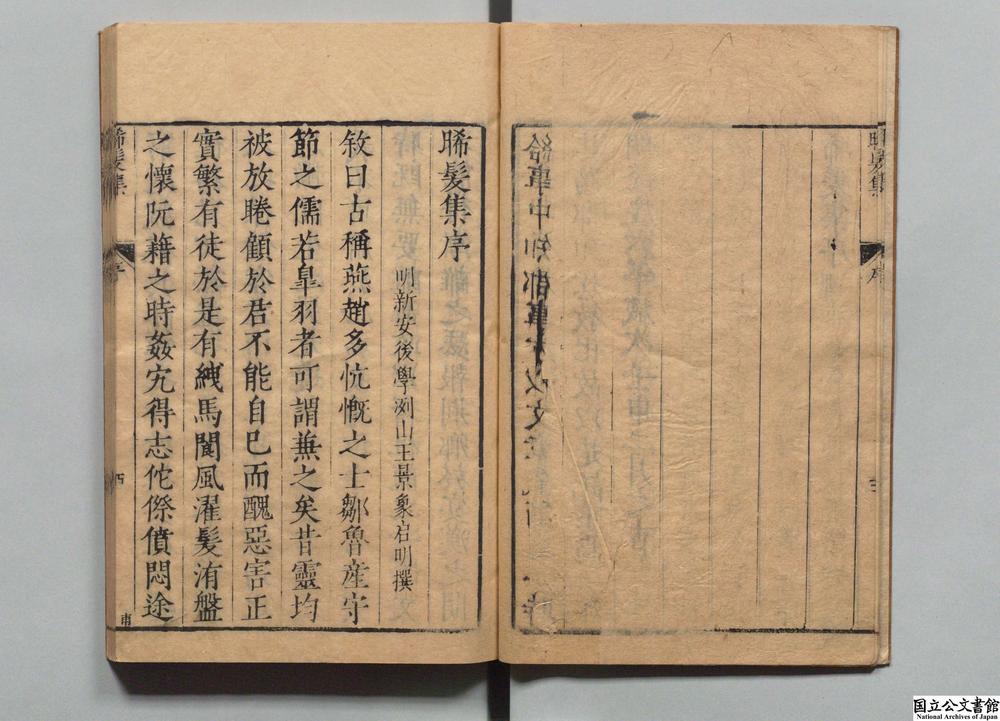 給事中知
晞髮集
序
晞髮集序
明新安後學洌山王景象启明撰
敘曰古稱燕趙多忼慨之士鄒魯産守
節之儒若臯羽者可謂兼之矣昔靈均
被放睠顧於君不能自已而醜惡害正
實繁有徒於是有緤馬閬風濯髮洧盤
之懷阮藉之時姦宄得志侘傺憤悶途
晞髮集
序
四
國立公文書館
National Archives of Japan